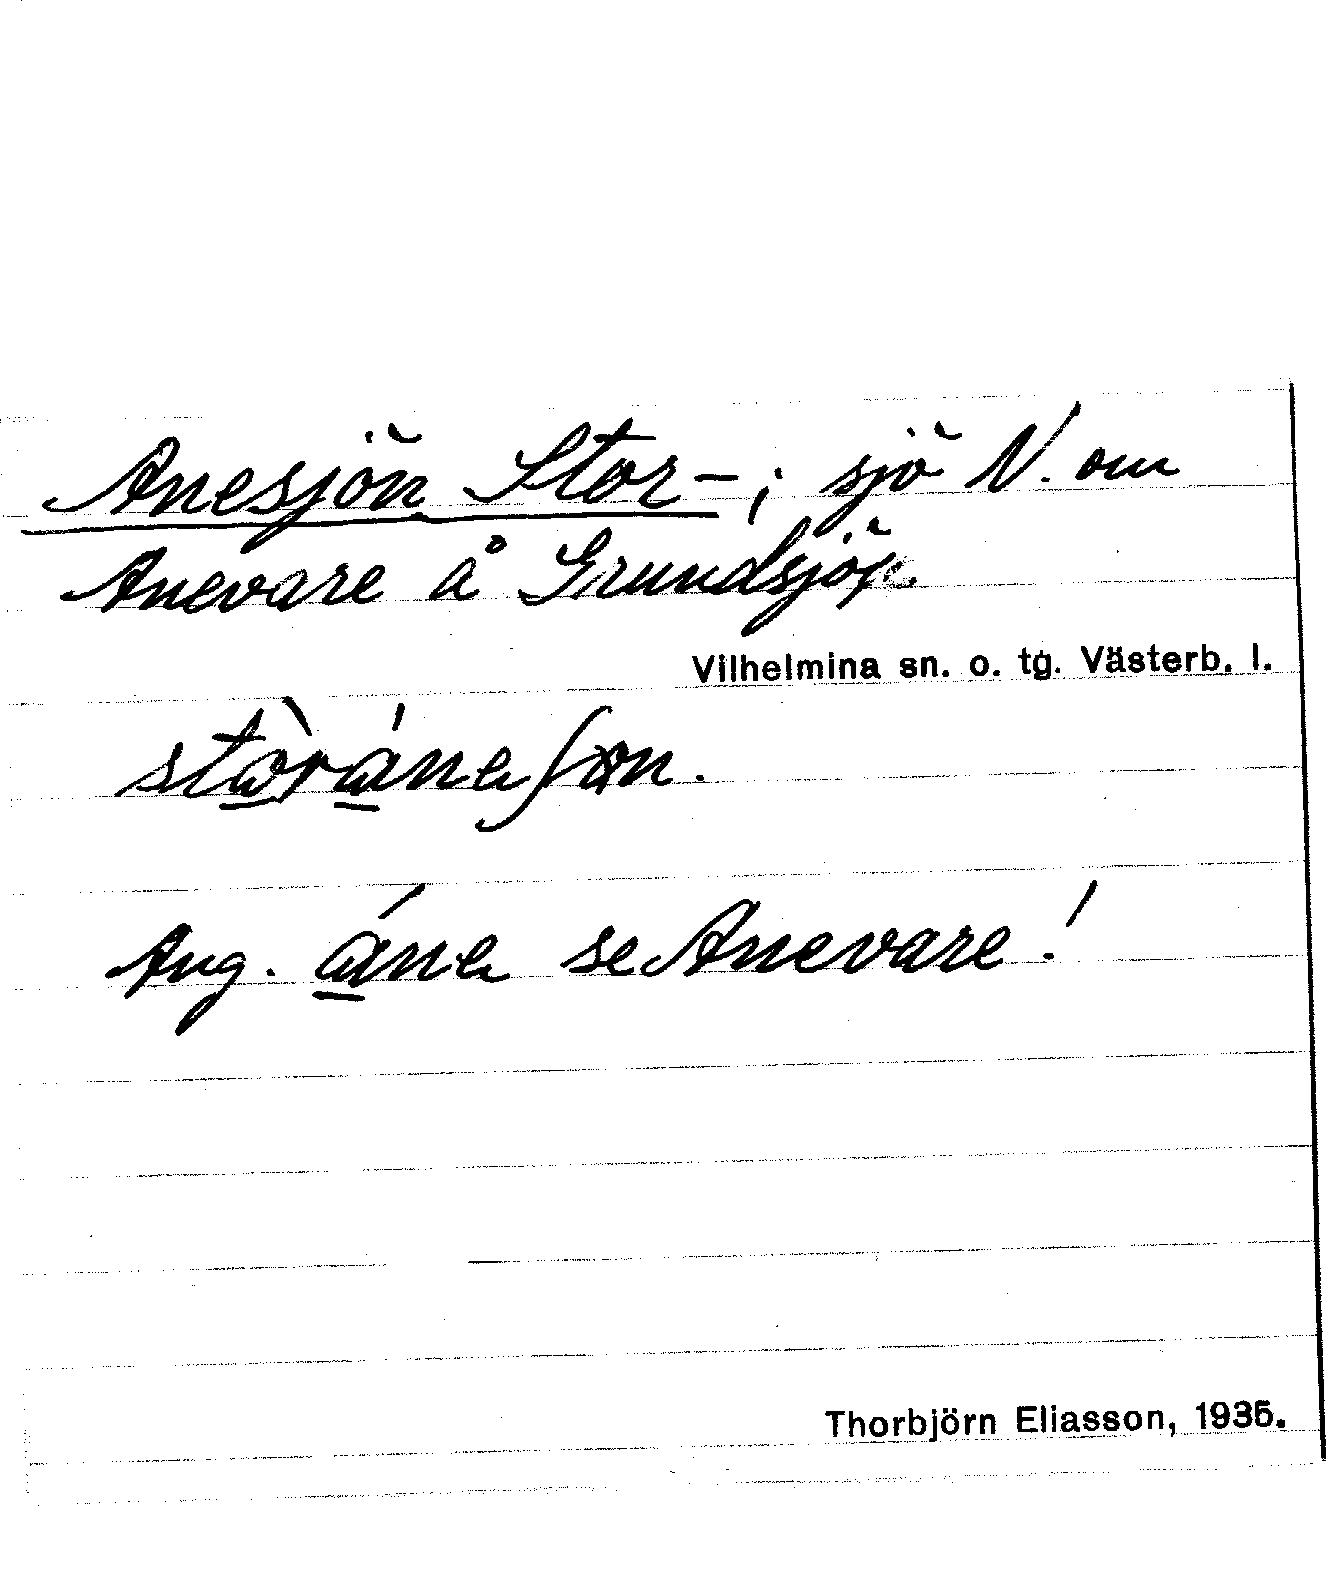 Anesjön Stor-; sjö N. om
Anevare å Grundsjön
Vilhelmina sn. o. tg. Västerb. l.
Ang. se Anevare!
Thorbjörn Eliasson, 1935.